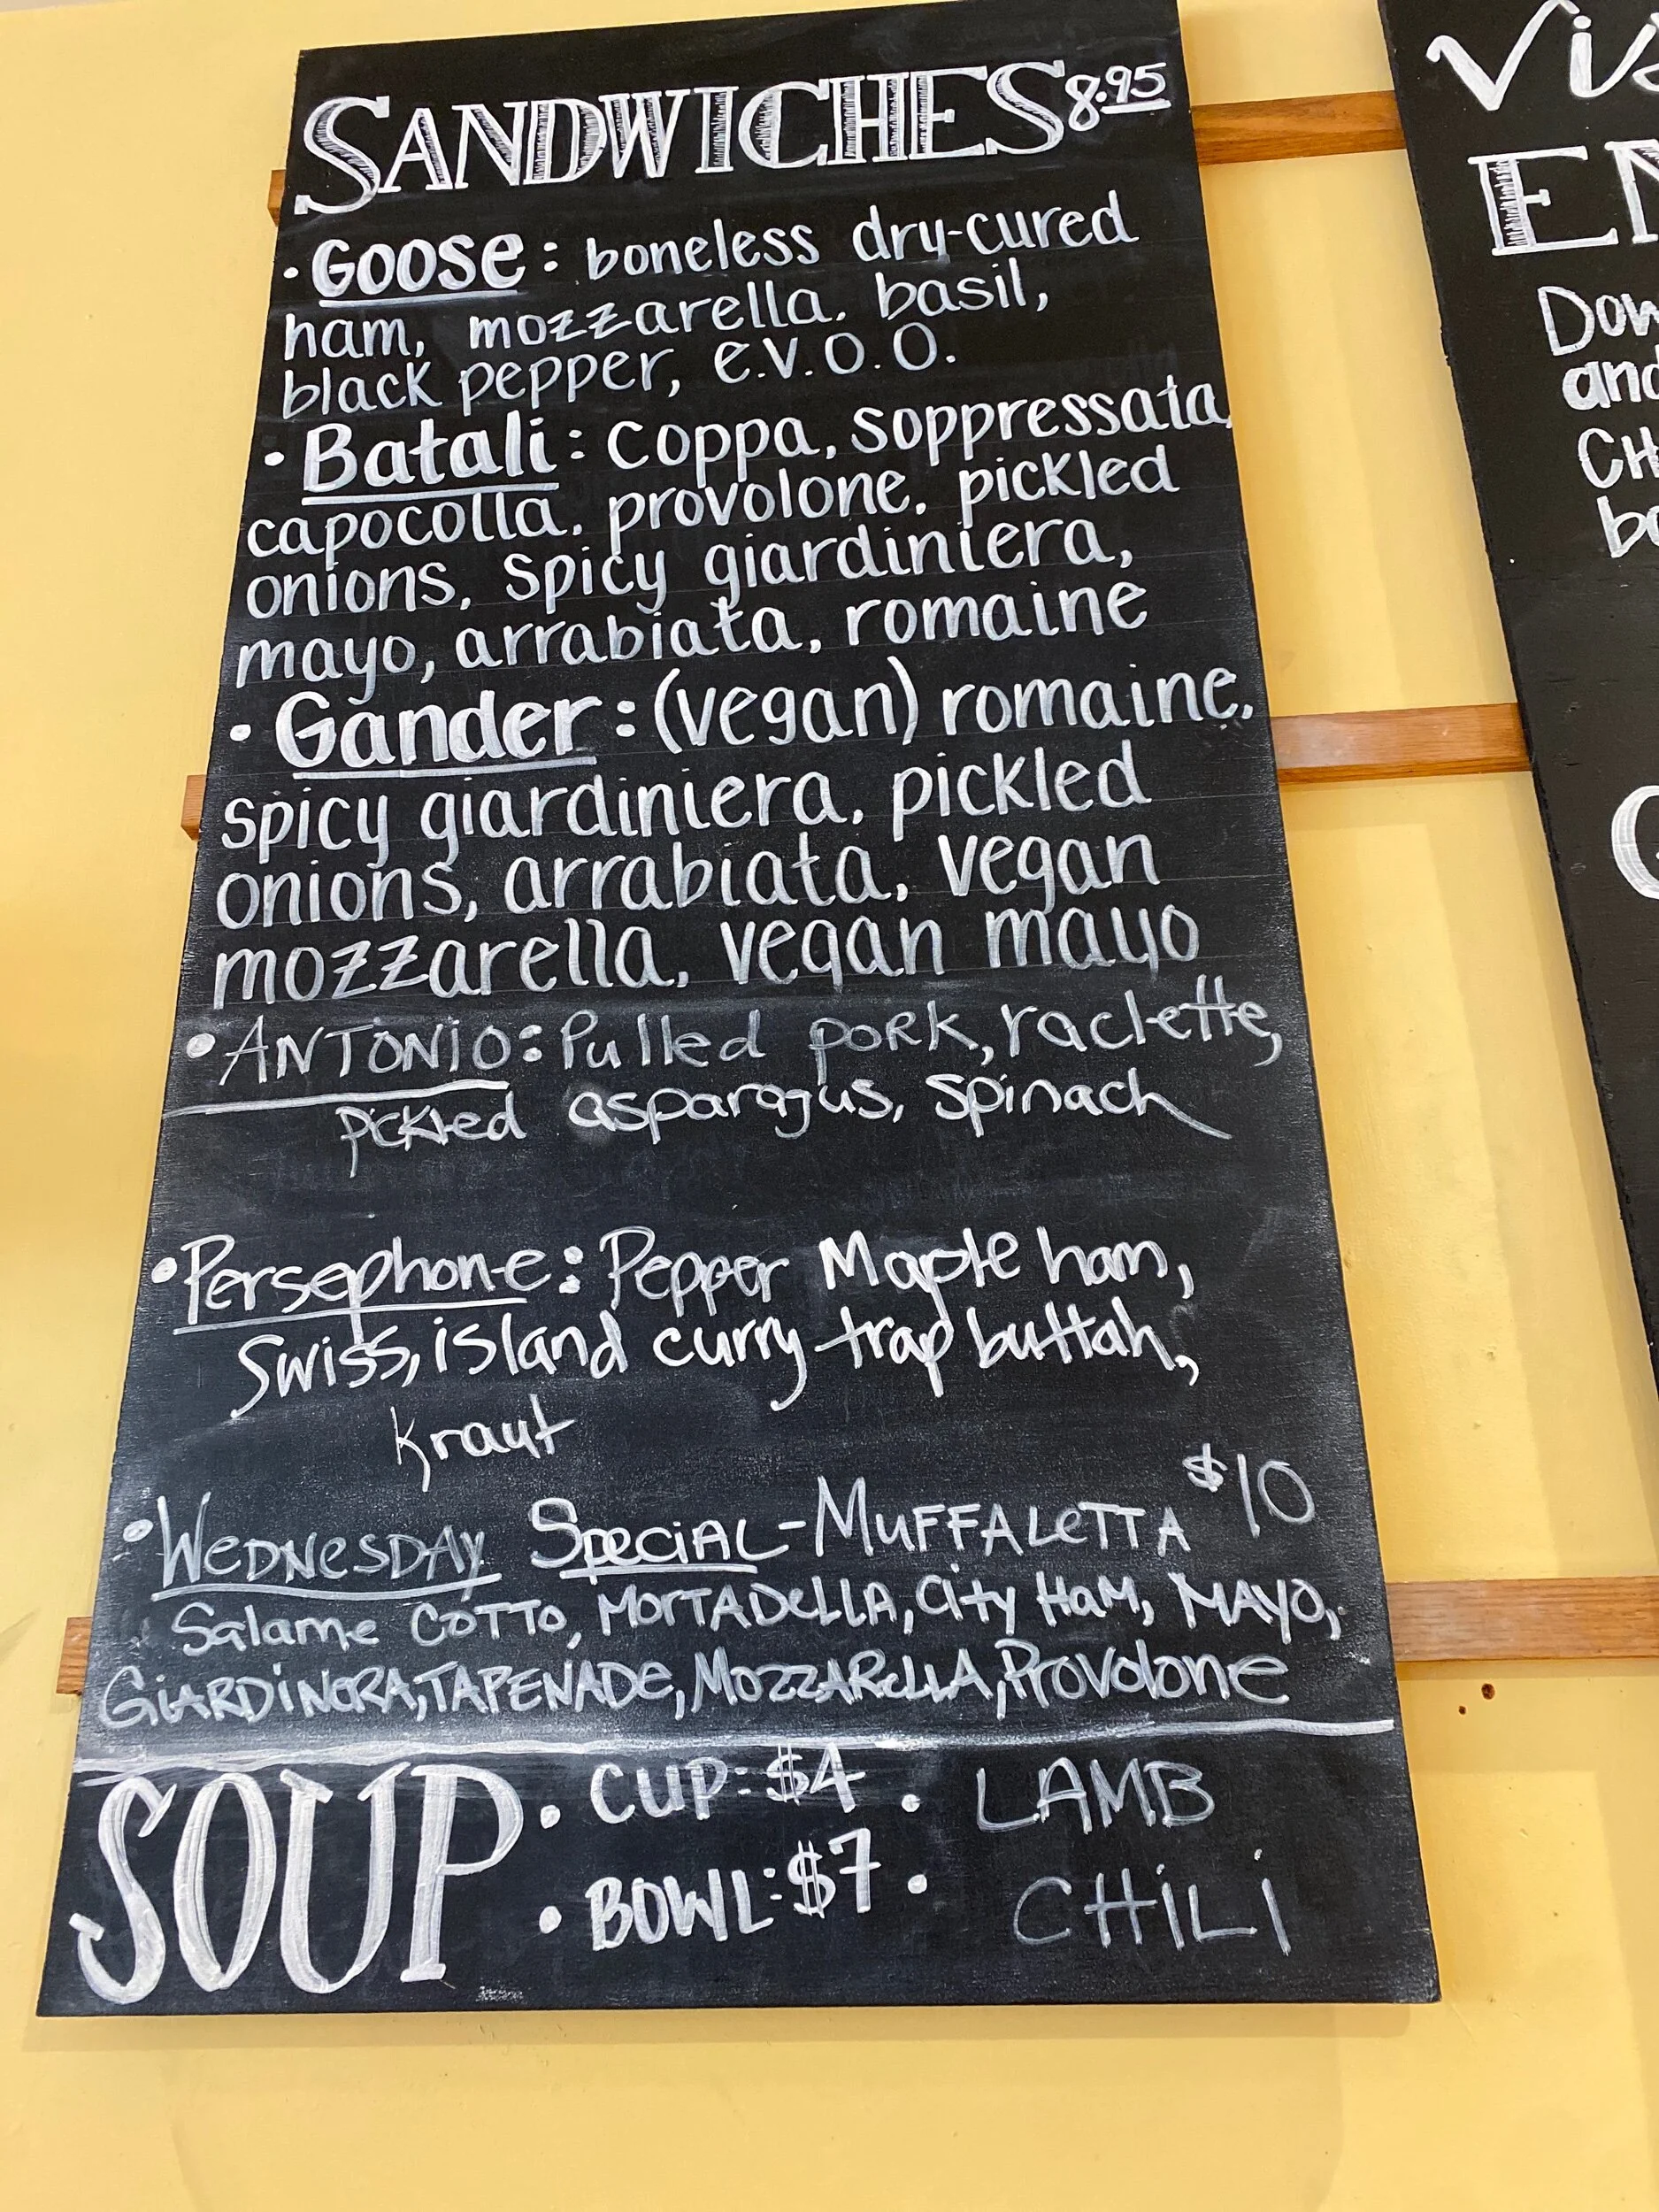 SANDWICHES 8.95
• Goose: boneless dry-cured
ham, mozzarella, basil,
black pepper, e.v.o.o.
• Batali: coppa, soppressata,
capocolla, provolone, pickled
onions, spicy giardiniera,
mayo, arrabiata, romaine
• Gander: (vegan) romaine,
spicy giardiniera, pickled
onions, arrabiata, vegan
mozzarella, vegan mayo
• ANTONIO: Pulled pork, raclette,
pickled asparagus, spinach
• Persephone: Pepper Maple ham,
Swiss, island curry trap buttah,
kraut
• WEDNESDAY SPECIAL - MUFFALETTA $10
Salame COTTO, MORTADELLA, City HAM, MAYO,
GIARDINERA, TAPENADE, MOZZARELLA, Provolone
SOUP • CUP: $4 • LAMB
• BOWL: $7 • CHILI
Vis
EN
Dow
and
CH